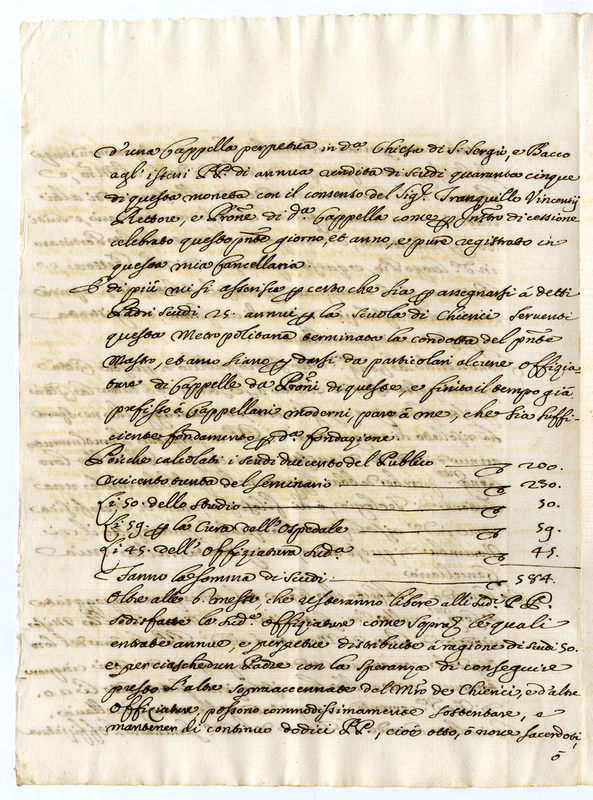 d'una Cappella perpetua in d.ª Chiesa di S. Sergio, e Bacco
agl'istessi PP. di annua rendita di Scudi quaranta cinque
di questa moneta con il consenso del Sig.r Tranquillo Vincentij
Rettore, e Prõne di d.ª Cappella come p Inst.ro di cessione
celebrato questo pñte giorno, et anno, e pure registrato in
questa mia Cancellaria.
E di più mi si asserisce p certo che sia p assegnarsi à detti
Padri scudi 25. annui p la Scuola di Chierici serventi
questa Metropolitana terminata la condotta del pñte
Mastro, et anco siano p darsi da particolari alcune offizia-
ture di Cappelle da Prõni di queste, e finito il tempo già
prefisso à Cappellani moderni, pare à me, che sia suffi-
ciente fondamento p d.ª fondazione.
Poiche calcolati i scudi duicento del Publico 200.
Duicento trenta del Seminario 230.
Li 50. dello Studio 50.
Li 59. p la Cura dell'Ospedale 59.
Li 45. dell'Offiziatura sud.ª 45.
Fanno la somma di Scudi 584.
Oltre alle 6. messe che resteranno libere alli sud.i PP.
sodisfatte le sud.e offiziature come sopra, le quali
entrate annue, e perpetue distribuite à ragione di scudi 50.
e per ciaschedun Padre con la speranza di conseguire
presto l'altre sopraaccennate del M.ro de Chierici, e d'altre
Offiziature possono commodissimamente sostentare, e
mantener di continuo dodici PP., cioè otto, ò nove sacerdoti,
ò